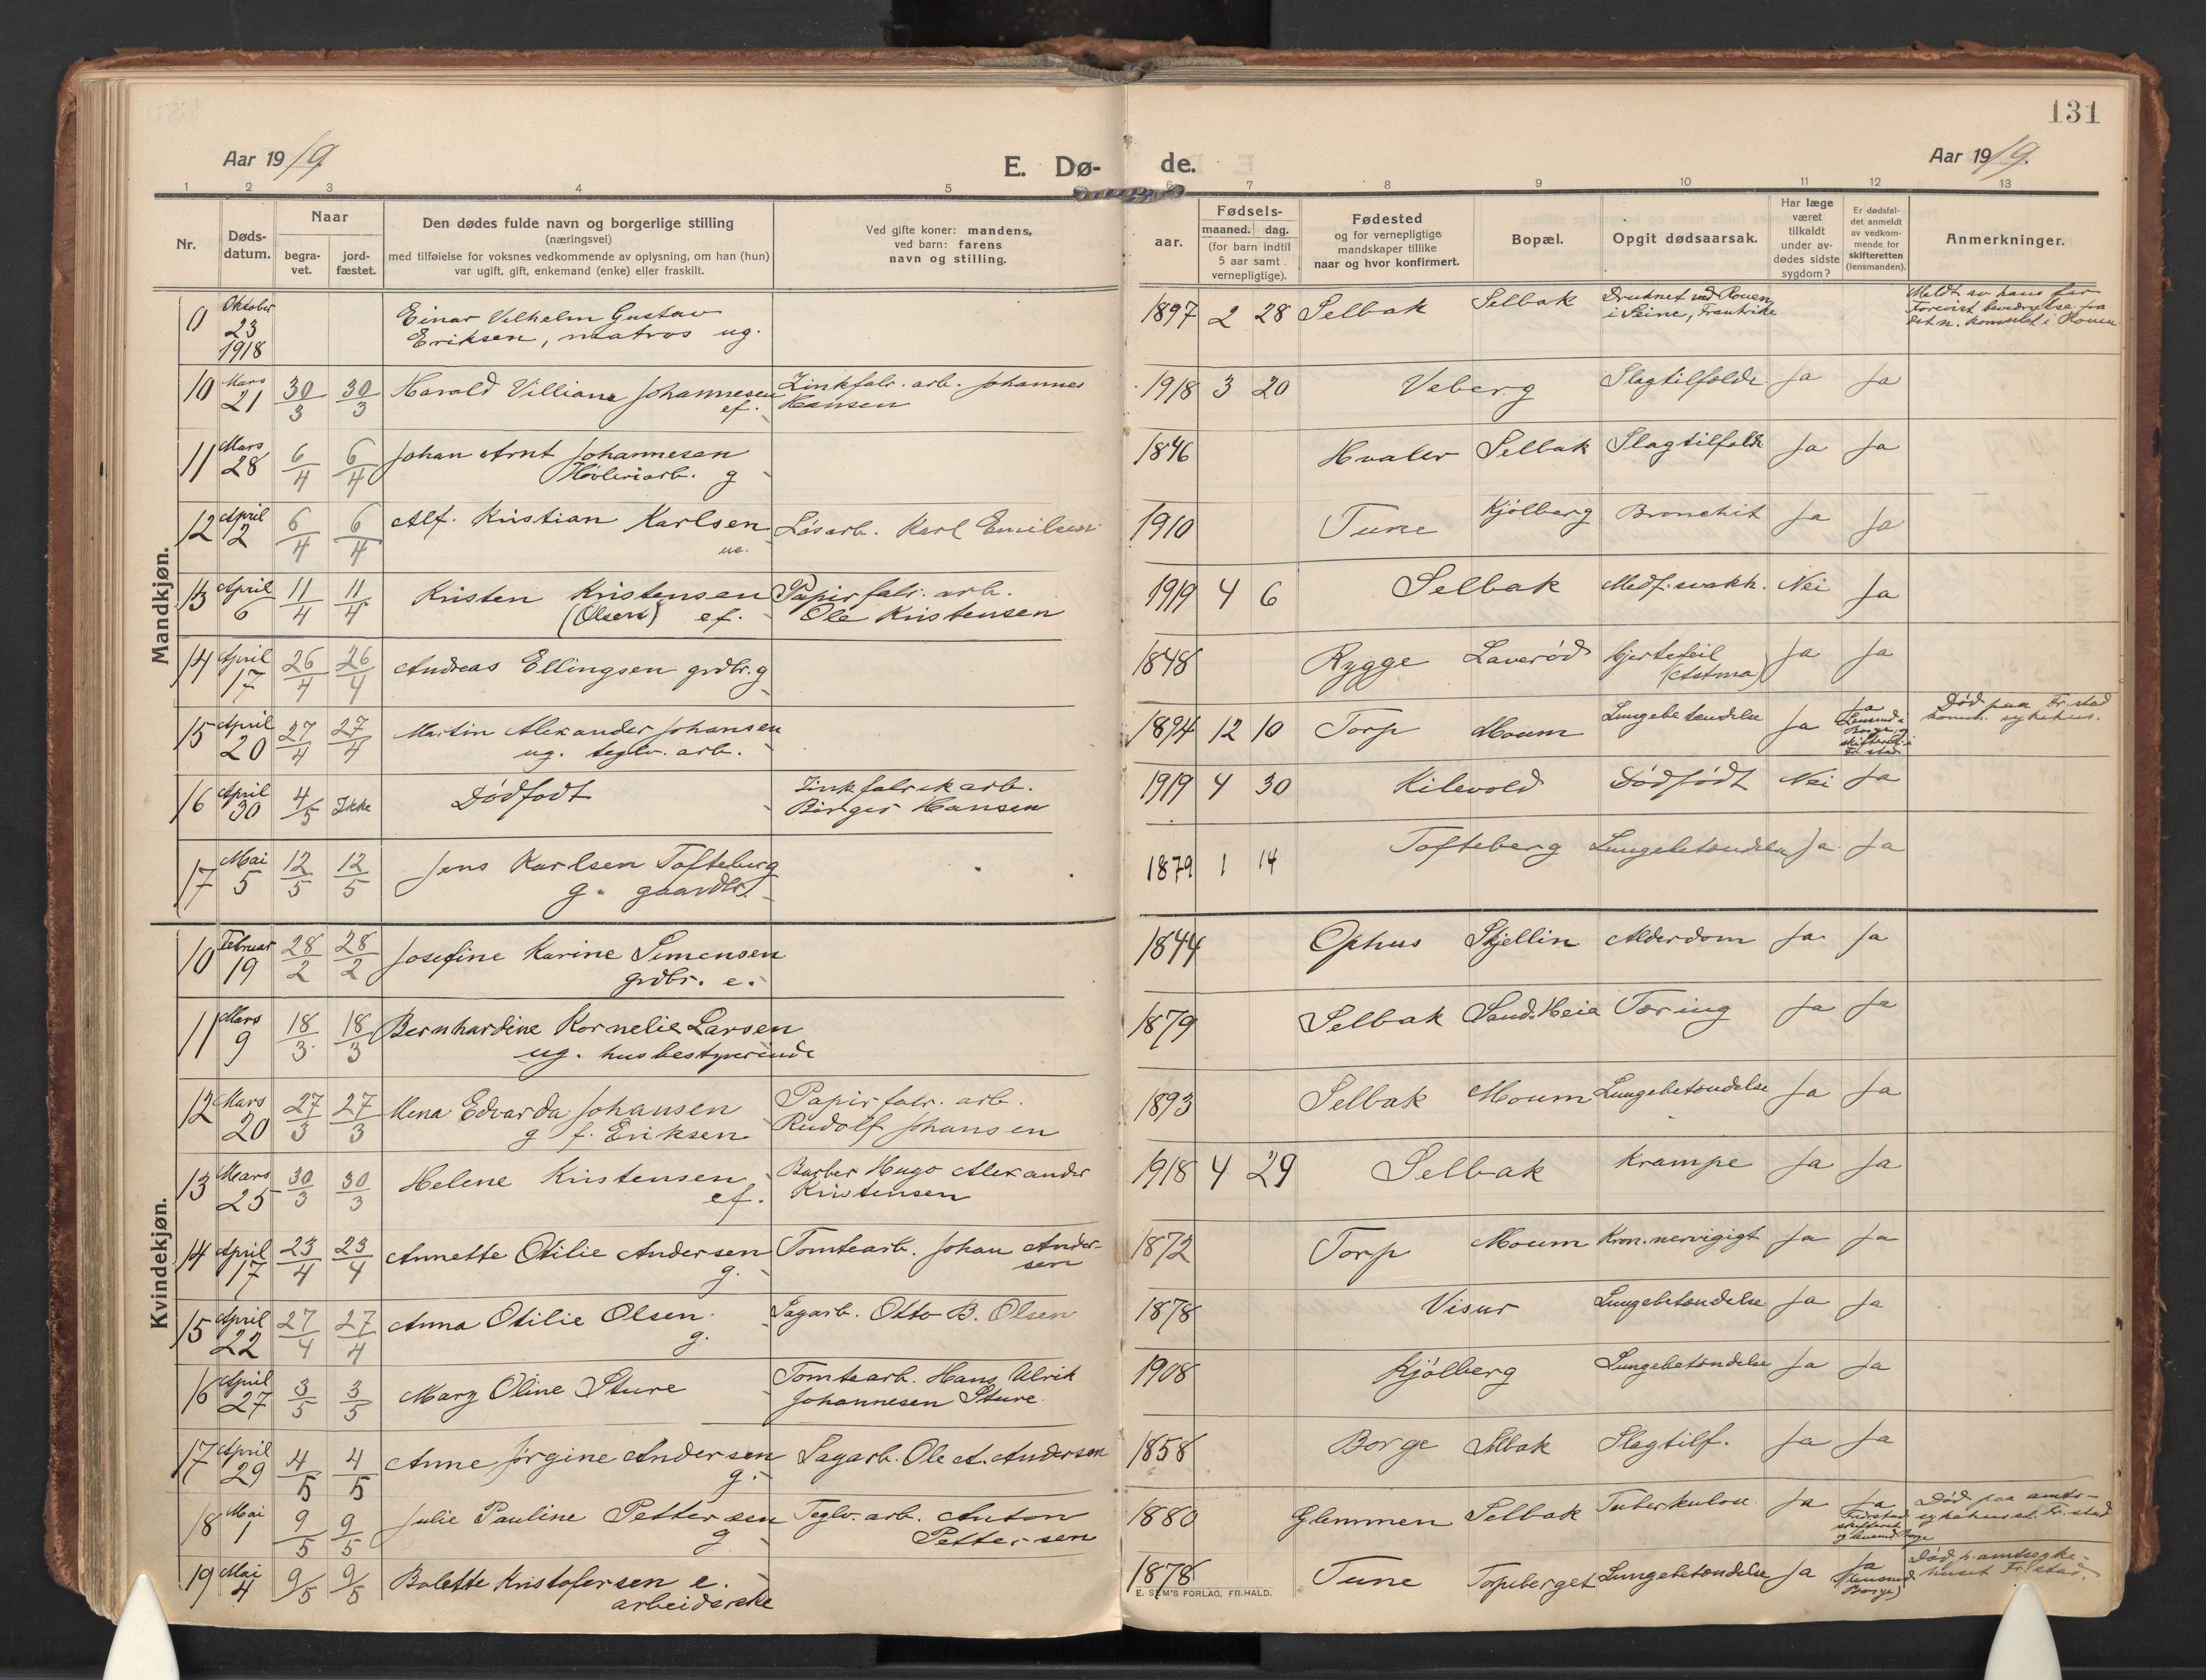 131
Aar 1919.
E. Dø-
de.
Aar 1919.
1 2 3 4 5 6 7 8 9 10 11 12 13
Nr.
Døds-
datum.
Naar
begra-
vet.
jord-
fæstet.
Den dødes fulde navn og borgerlige stilling
(næringsvei)
med tilføielse for voksnes vedkommende av oplysning, om han (hun)
var ugift, gift, enkemand (enke) eller fraskilt.
Ved gifte koner: mandens,
ved barn: farens
navn og stilling.
aar.
Fødsels-
maaned. dag.
(for barn indtil
5 aar samt
vernepligtige).
Fødested
og for vernepligtige
mandskaper tillike
naar og hvor konfirmert.
Bopæl.
Opgit dødsaarsak.
Har læge
været
tilkaldt
under av-
dødes sidste
sygdom?
Er dødsfal-
det anmeldt
av vedkom-
mende for
skifteretten
(lensmanden).
Anmerkninger.
Mandkjøn.
0 Oktober 23 1918
Einar Vilhelm Gustav
Eriksen, matros ug.
1897 2 28 Selbak Selbak
Druknet ved Rouen
i Seine, Frankrike
Meldt av hans far
Forevist bevidnelse fra
det n. konsulat i Rouen
10 Mars 21 30/3 30/3 Harald Villiam Johannesen
ef.
Zinkfabr. arb. Johannes
Hansen
1918 3 20 Veberg Slagtilfælde Ja Ja
11 Mars 28 6/4 6/4 Johan Arnt Johannesen
Høvleriarb. g
1846 Hvaler Selbak Slagtilfelde Ja Ja
12 April 2 6/4 6/4 Alf. Kristian Karlsen
Løsarb. Karl Emilsen
1910 Tune Kjölberg Bronchit Ja Ja
13 April 6 11/4 11/4 Kristen Kristensen
(Olsen) ef.
Papirfabr. arb.
Ole Kristensen
1919 4 6 Selbak Medf. svakh. Nei Ja
14 April 17 26/4 26/4 Andreas Ellingsen grdbr. g
1848 Rygge Laverød Hjertefeil
(Astma)
Ja Ja
15 April 20 27/4 27/4 Martin Alexander Johansen
ug. teglv. arb.
1894 12 10 Torp Moum Lungebetændelse Ja
Ja
Lensmd. i
Borge og
skifteret i
Fr. stad
Død paa Fr. stad
komm. sykehus.
16 April 30 4/5 Ikke Dödfödt
Zinkfabrikarb.
Birger Hansen
1919 4 30 Kilevold Dödfödt Nei Ja
17 Mai 5 12/5 12/5 Jens Karlsen Tofteberg
g. gaardbr.
1879 1 14 Tofteberg Lungebetændelse Ja Ja
Kvindekjøn.
10 Februar 19 28/2 28/2 Josefine Karine Simensen
grdbr. e.
1844 Ophus Skjellin Alderdom Ja Ja
11 Mars 9 18/3 18/3 Bernhardine Kornelie Larsen
ug. husbestyrerinde
1879 Selbak Sand.Heia Tæring Ja Ja
12 Mars 20 27/3 27/3 Mena Edvarda Johansen
g f. Eriksen
Papirfabr. arb.
Rudolf Johansen
1893 Selbak Moum Lungebetændelse Ja Ja
13 Mars 25 30/3 30/3 Helene Kristensen
ef.
Barber Hugo Alexander
Kristensen
1918 4 29 Selbak Krampe Ja Ja
14 April 17 23/4 23/4 Annette Otilie Andersen
g.
Tomtearb. Johan Ander-
sen
1872 Torp Moum Kron. nervigigt Ja Ja
15 April 22 27/4 27/4 Anna Otilie Olsen
g.
Sagarb. Otto B. Olsen
1878 Visur Lungebetændelse Ja Ja
16 April 27 3/5 3/5 Mary Oline Sture
Tomtearb. Hans Ulrik
Johannesen Sture
1908 Kjölberg Lungebetændelse Ja Ja
17 April 29 4/5 4/5 Anne Jørgine Andersen
g.
Sagarb. Ole A. Andersen
1858 Borge Selbak Slagtilf. Ja Ja
18 Mai 1 9/5 9/5 Julie Pauline Pettersen
g
Teglv. arb. Anton
Pettersen
1880 Glemmen Selbak Tuberkulose Ja
Ja
Fredrstad
skifteret
og lensmd Borge
Død paa amts-
sykehuset Fr. stad
19 Mai 4 9/5 9/5 Bolette Kristofersen e.
arbeiderske
1878 Tune Torpeberget Lungebetændelse Ja
Ja
(Lensmd
Borge)
Død p. amtssyke-
huset Fr. stad.
E. SEM'S FORLAG, FR.HALD.